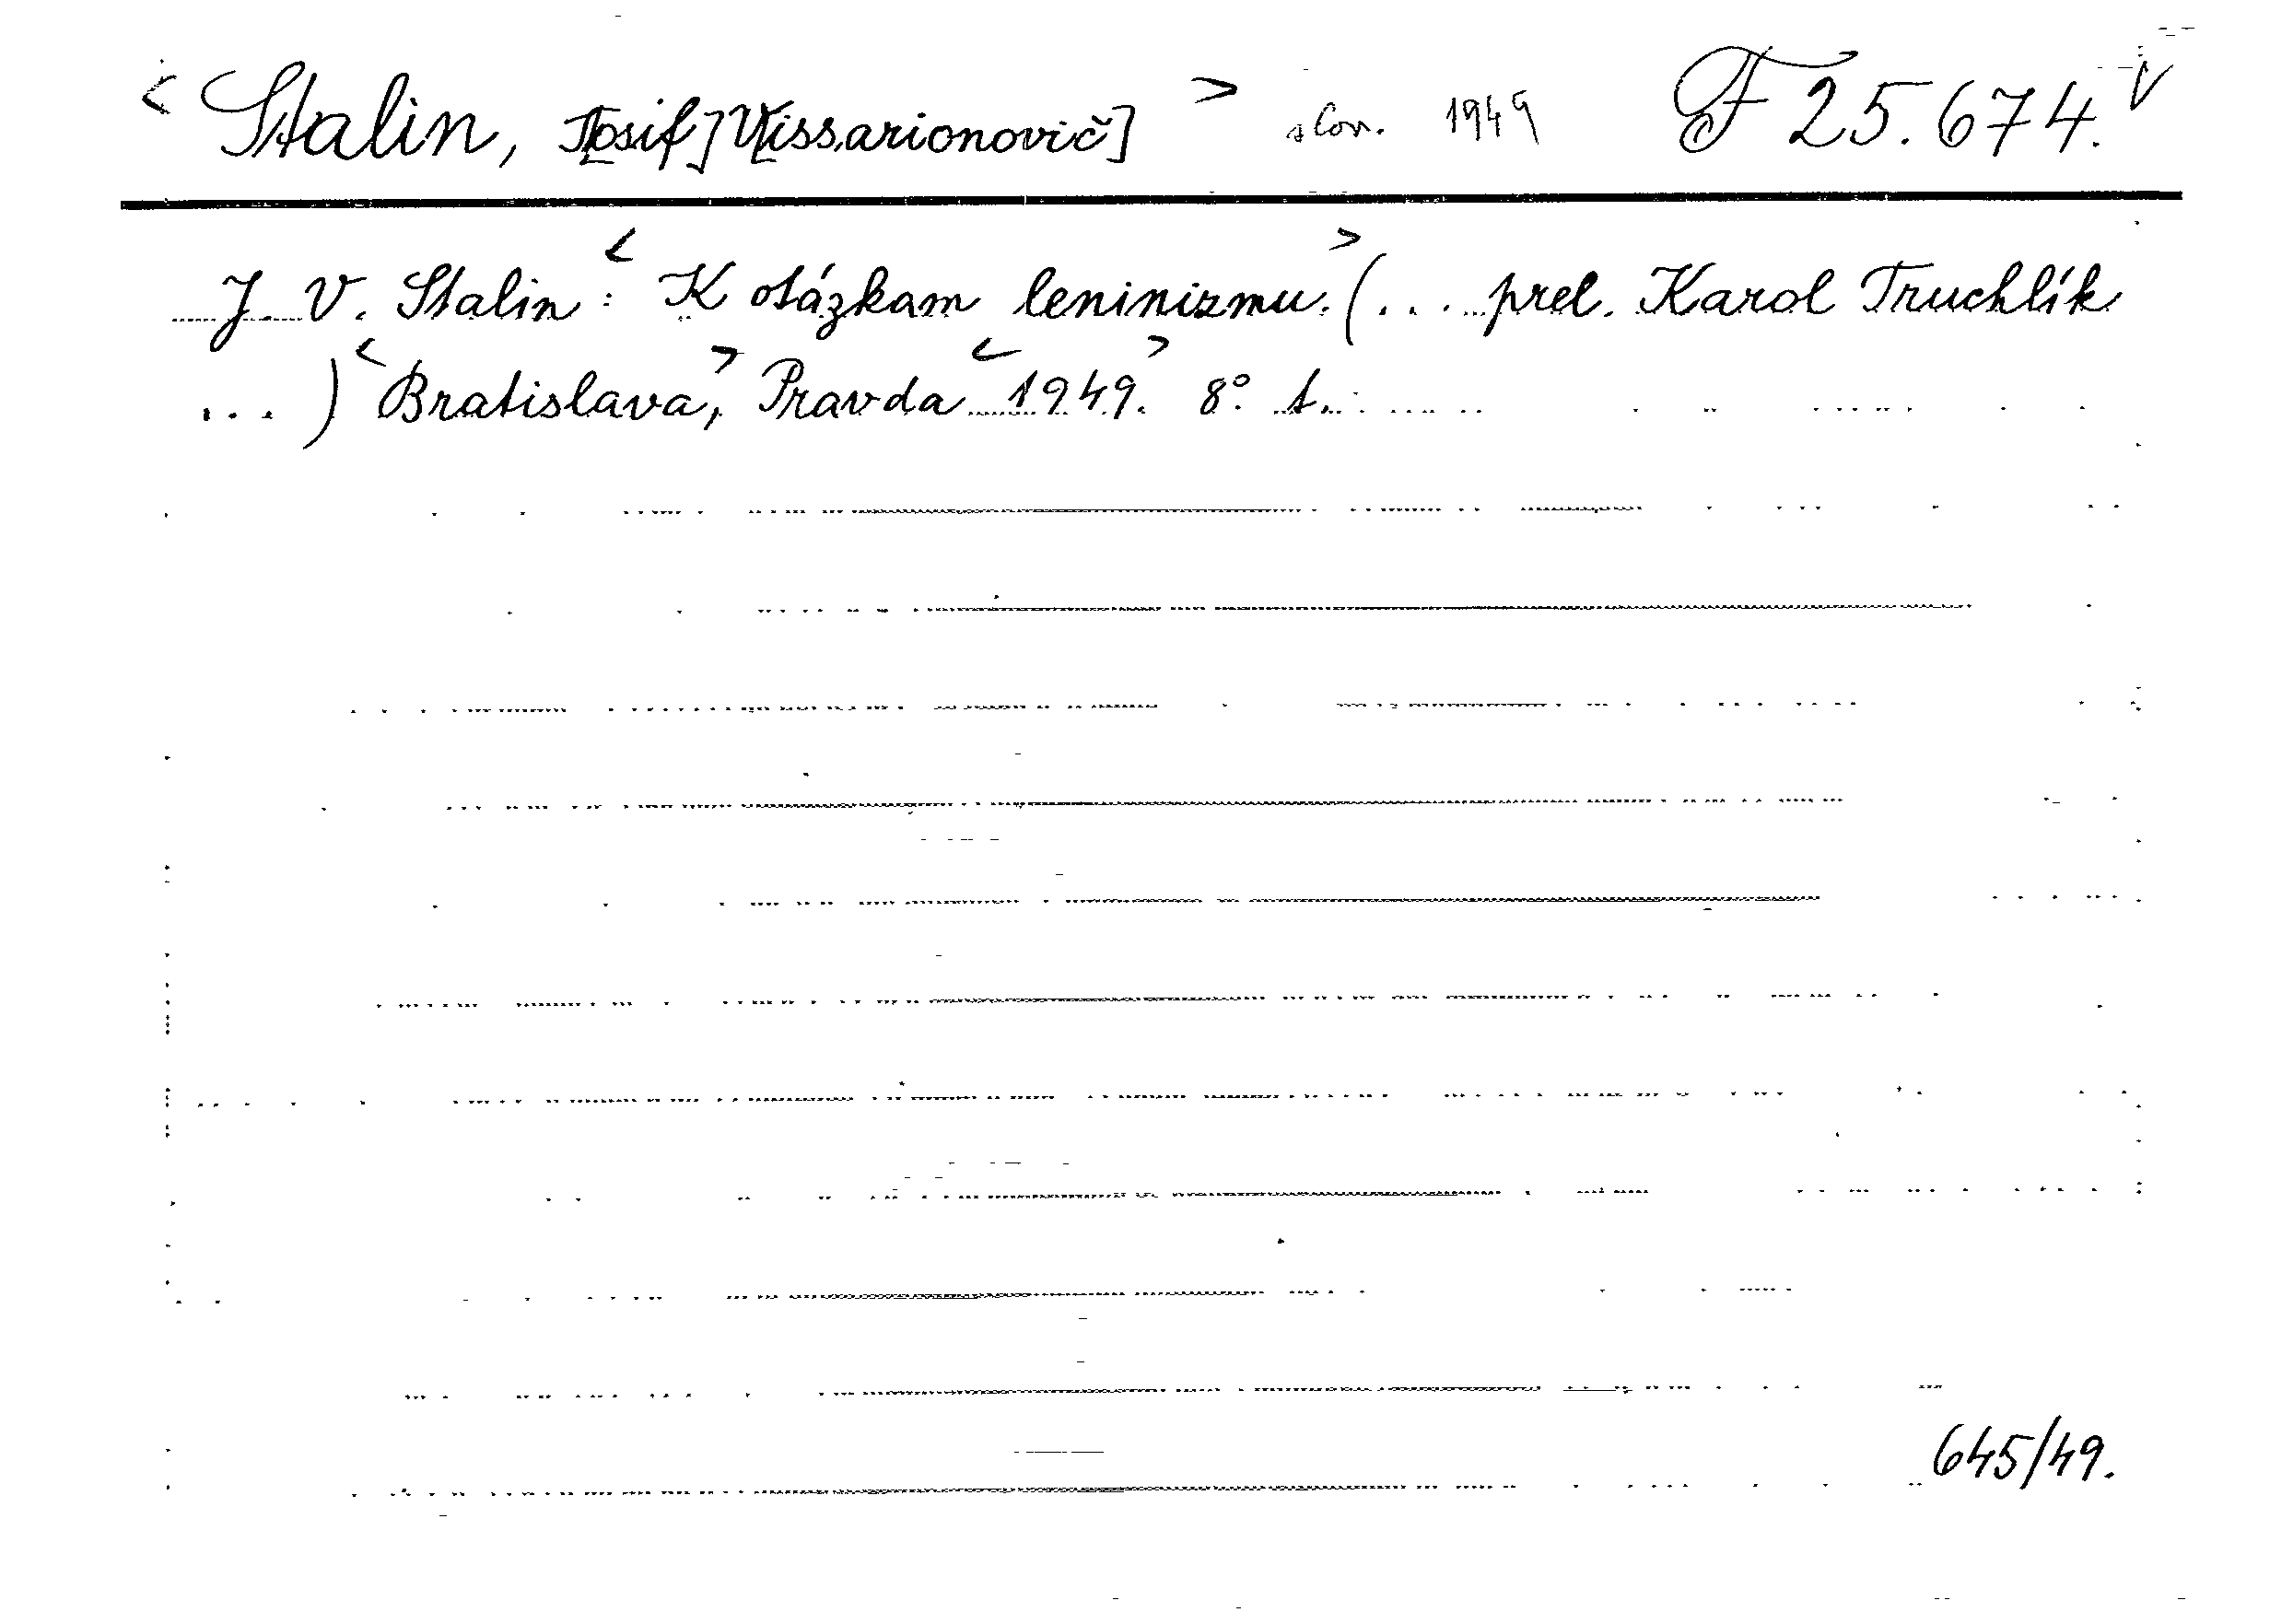 < Stalin, J[osif] V[issarionovič] > slov. 1949 F 25.674. V
J. V. Stalin: < K otázkam leninizmu. > (... prel. Karol Truchlík
...) < Bratislava, > Pravda < 1949. > 8°.
645/49.